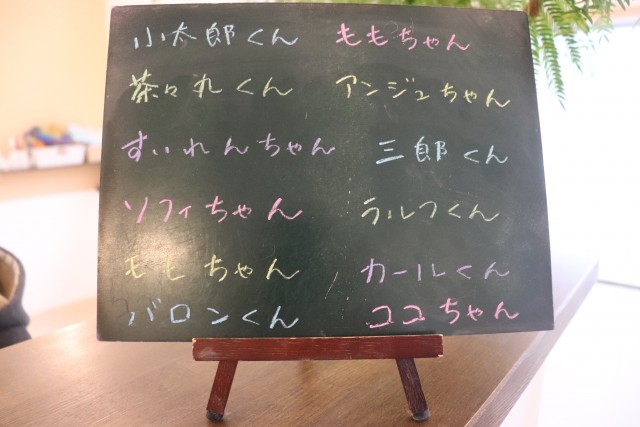 小太郎くん ももちゃん
茶々丸くん アンジュちゃん
すいれんちゃん 三郎くん
ソフィちゃん ラルフくん
ももちゃん カールくん
バロンくん ココちゃん